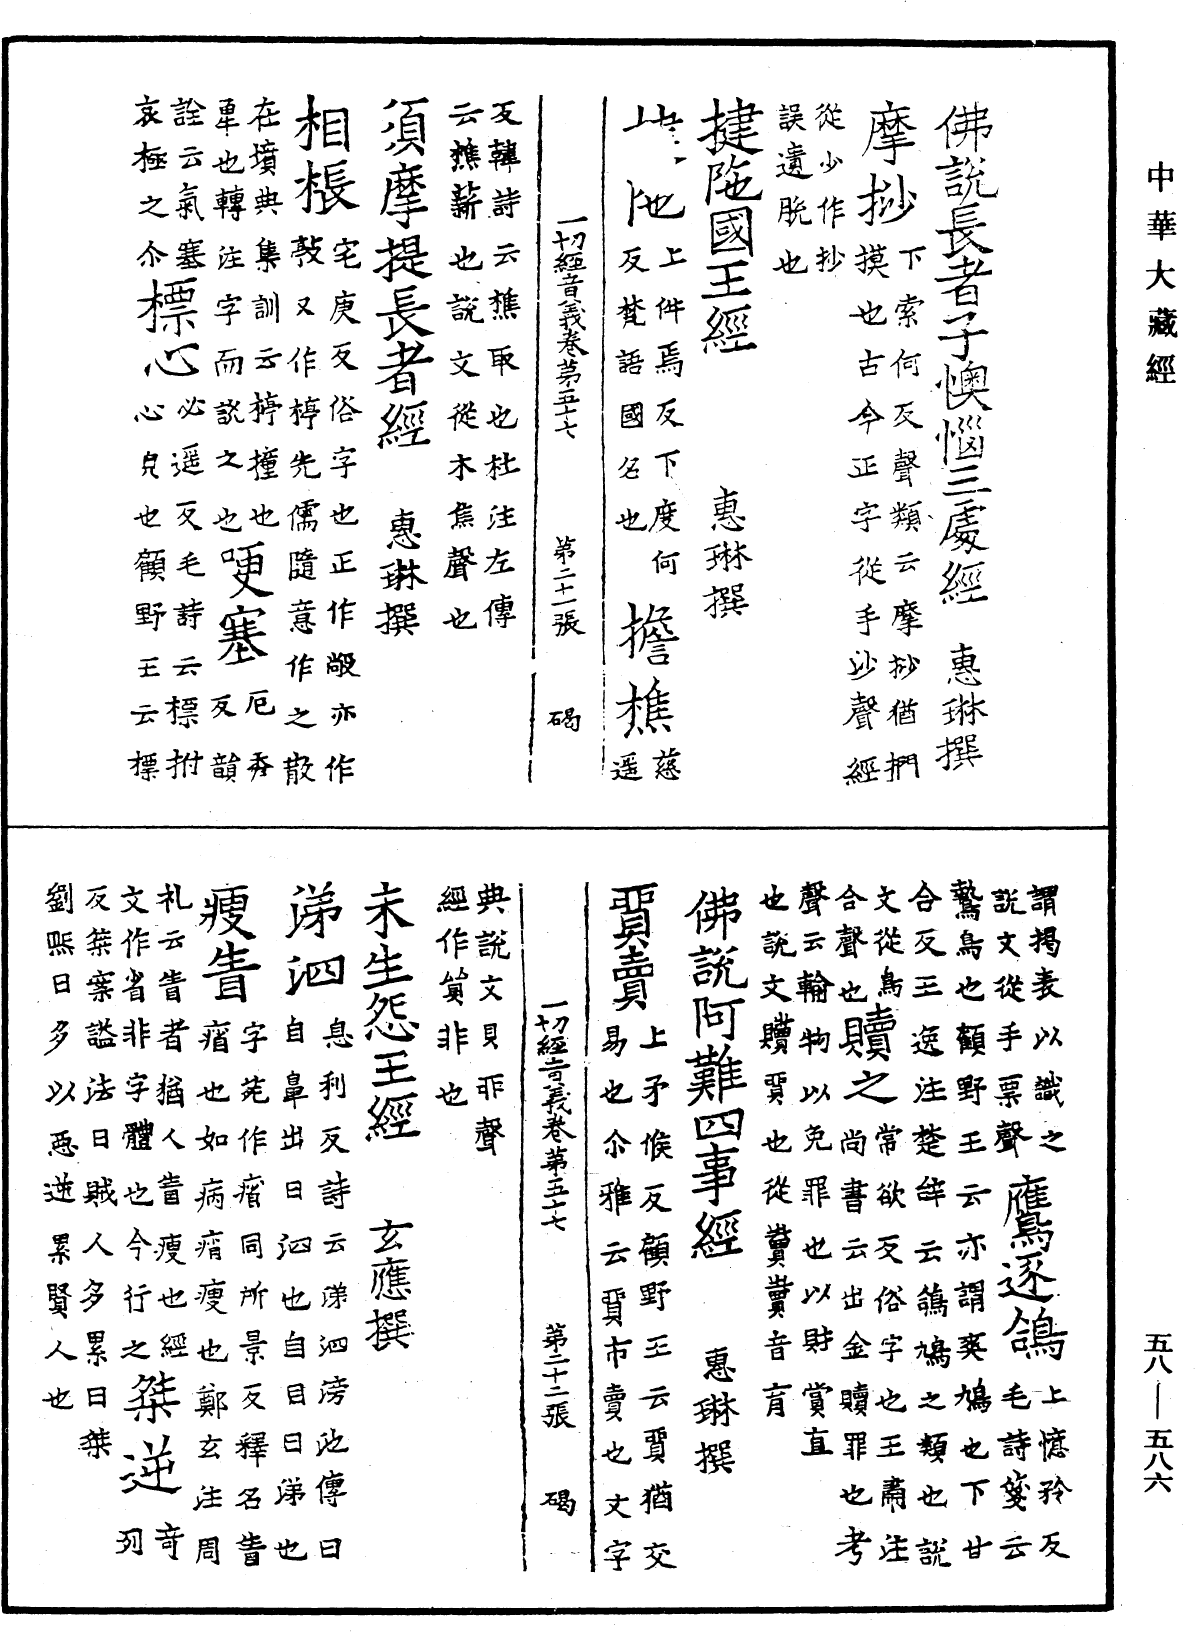 中華大藏經
佛說長者子懊惱三處經　惠琳撰
摩挱下索何反聲類云摩挱猶捫
摸也古今正字從手沙聲經
從少作抄
誤遺脫也
揵陁國王經　惠琳撰
上件焉反下度何
反梵語國名也擔樵慈遥
一切經音義卷第五十七　第二十一張　碣
反韓詩云樵取也杜注左傳
云樵薪也說文從木焦聲也
須摩提長者經　惠琳撰
相棖宅庚反俗字也正作敞亦作
敦又作樽先儒隨意作之散
在墳典集訓云樽撞也哽塞厄弄
車也轉注字而說之也反韻
詮云氣塞標心必遥反毛詩云標拊
哀極之尒心皃也顧野王云標
謂揭表以識之鷹逐鴿上憶矜反
說文從手票聲毛詩箋云
鷙鳥也顧野王云亦謂爽鳩也下甘
合反王逸注楚辝云鴿鳩之類也說
文從鳥贖之常欲反俗字也王肅注
合聲也尚書云出金贖罪也考
聲云輸物以免罪也以財賞直
也說文贖買也從賣賣音育
佛說阿難四事經　惠琳撰
貿賣上矛候反顧野王云貿猶交
易也尒雅云貿市賣也文字
一切經音義卷第五十七　第二十二張　碣
典說文貝丣聲
經作貿非也
未生怨王經　玄應撰
涕泗息利反詩云涕泗滂沱傳曰
自鼻出曰泗也自目曰涕也
瘦眚字苑作㾪同所景反釋名眚
㾪也如病㾪瘦也鄭玄注周
礼云眚者猶人眚瘦也經桀逆奇
文作省非字體也今行之列
反桀案謚法曰賊人多累曰桀
劉熙曰多以惡逆累賢人也
五八—五八六